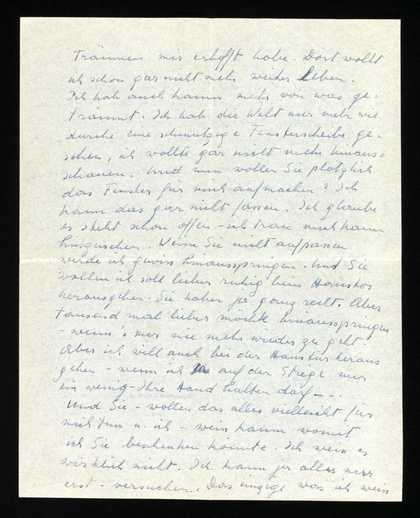 Träumen mir erhofft habe. Dort wollt
ich schon gar nicht mehr weiter leben.
Ich hab auch kaum mehr von was ge-
träumt. Ich hab die Welt nur mehr wie
durch eine schmutzige Fensterscheibe ge-
sehen, ich wollte gar nicht mehr hinaus-
schauen. Und nun wollen Sie plötzlich
das Fenster für mich aufmachen? Ich
kann das gar nicht fassen. Ich glaube
es steht schon offen - ich trau mich kaum
hinzusehen. Wenn Sie nicht aufpassen
werde ich gewiss hinausspringen. Und Sie
wollen ich soll lieber ruhig beim Haustor
herausgehen. Sie haben ja ganz recht. Aber
tausend mal lieber möcht hinausspringen
- wenn's nur nie mehr wieder zu geht.
Aber ich will auch bei der Haustür heraus
gehen - wenn ich auf der Stiege nur
ein wenig - Ihre Hand halten darf - . .
Und Sie - wollen das alles vielleicht für
mich tun u. ich - weiss kaum womit
ich Sie beschenken könnte. Ich weiss es
wirklich nicht. Ich kann ja alles nur
erst - versuchen. Das einzige was ich weiss